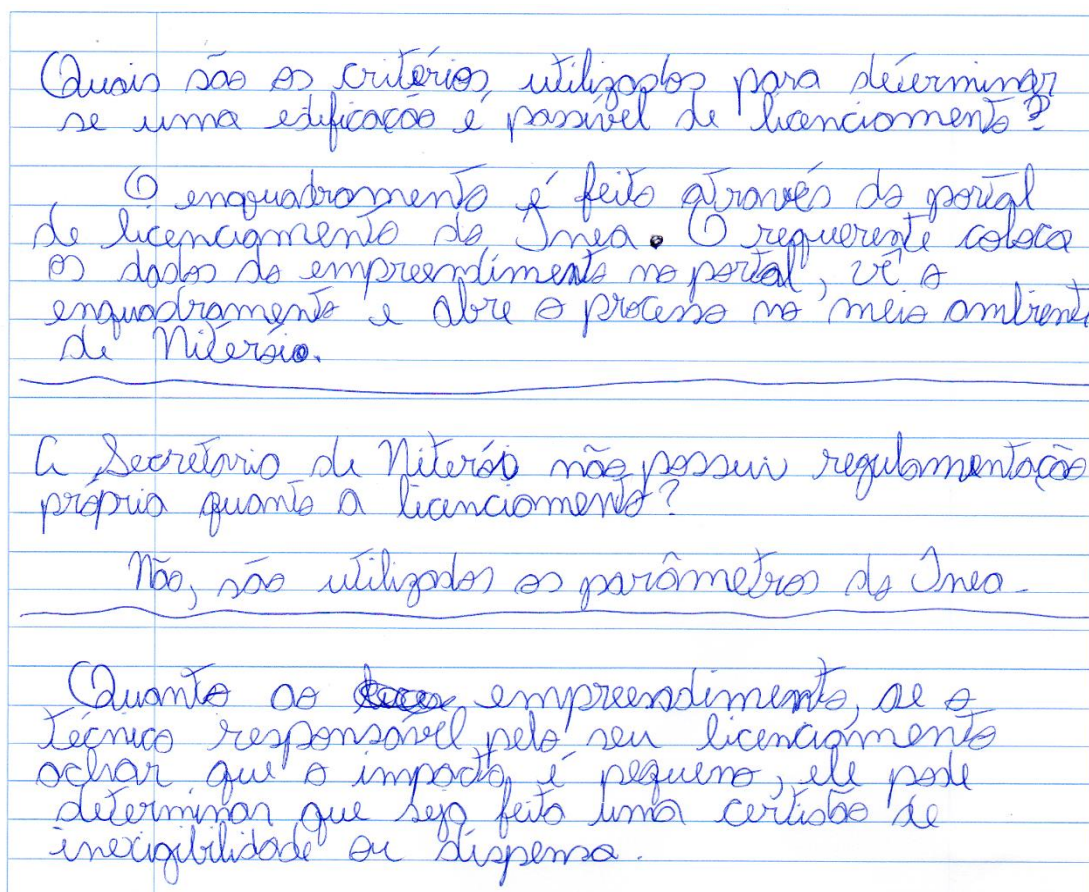 Quais são os critérios utilizados para determinar
se uma edificação é passível de licenciamento?
O enquadramento é feito através do portal
de licenciamento do Inea. O requerente coloca
os dados do empreendimento no portal, vê o
enquadramento e abre o processo no meio ambiente
de Niterói.
A Secretária de Niterói não possui regulamentação
própria quanto a licenciamento?
Não, são utilizados os parâmetros do Inea.
Quanto ao empreendimento, se o
técnico responsável pelo seu licenciamento
achar que o impacto é pequeno, ele pode
determinar que seja feito uma certidão de
inexigibilidade ou dispensa.